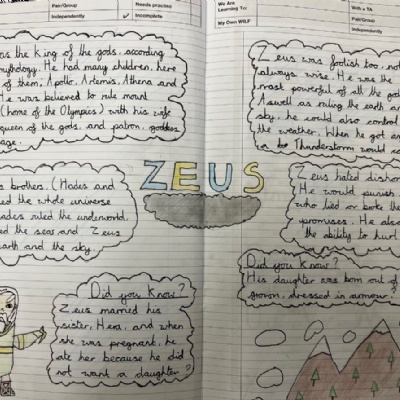 Pair/Group
Needs practice
Independently
Incomplete
We Are
Learning To:
My Own WILF
With a TA
Pair/Group
Independently
the King of the gods, according
mythology. He had many children, here
of them; Apollo, Artemis, Athena and
He was believed to rule mount
(home of the Olympics) with his wife
queen of the gods, and patron goddess
age.
brothers. (Hades and
ed the whole universe
ades ruled the underworld,
ed the seas and Zeus
earth and the sky.
Did you know?
Zeus married his
sister, Hera, and when
she was pregnant, he
ate her because he did
not want a daughter?
ZEUS
Zeus was foolish too, not
always wise. He was the
most powerful of all the god
Aswell as ruling the earth an
sky, he could also control
the weather. When he got an
a Thunderstorm would
Zeus hated dishon
He would punish
who lied or
promises. He also
the ability to hurl
Did you know?
His daughter was born out of
grown, dressed in armour?